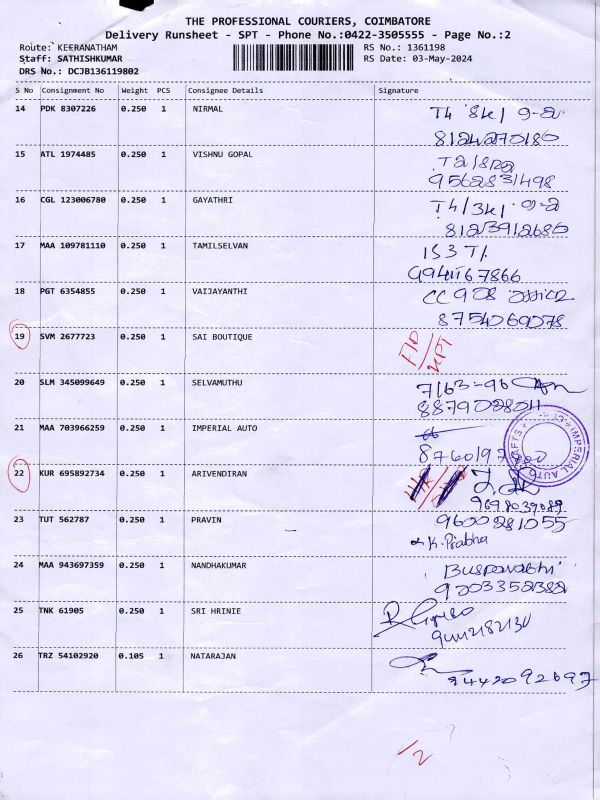 THE PROFESSIONAL COURIERS, COIMBATORE
Delivery Runsheet - SPT - Phone No.:0422-3505555 - Page No.:2
Route: KEERANATHAM RS No.: 1361198
Staff: SATHISHKUMAR RS Date: 03-May-2024
DRS No.: DCJB136119802
S No Consignment No Weight PCS Consignee Details Signature
14 PDK 8307226 0.250 1 NIRMAL
8124270180
15 ATL 1974485 0.250 1 VISHNU GOPAL
9562831498
16 CGL 123006780 0.250 1 GAYATHRI
8123912680
17 MAA 109781110 0.250 1 TAMILSELVAN
9941167866
18 PGT 6354855 0.250 1 VAIJAYANTHI
8754069078
19 SVM 2677723 0.250 1 SAI BOUTIQUE
20 SLM 345099649 0.250 1 SELVAMUTHU
8879028011
21 MAA 703966259 0.250 1 IMPERIAL AUTO
IMPERIAL AUTO
22 KUR 695892734 0.250 1 ARIVENDIRAN
9698039089
23 TUT 562787 0.250 1 PRAVIN 9600281055
K. Prabha
24 MAA 943697359 0.250 1 NANDHAKUMAR
9003352382
25 TNK 61905 0.250 1 SRI HRINIE
26 TRZ 54102920 0.105 1 NATARAJAN
9442092697
1/2